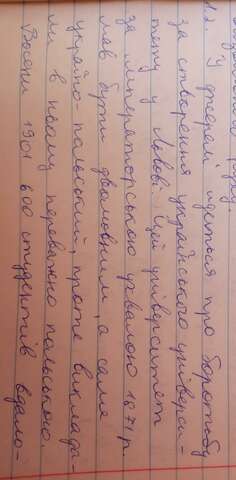 12. У джерелі йдеться про боротьбу
за створення українського універси-
тету у Львові. Цей університет
за імператорською ухвалою 1871 р.
мав бути двомовним, а саме
україно-польський, проте виклада-
ли в ньому переважно польською.
Восени 1901 600 студентів вдало-